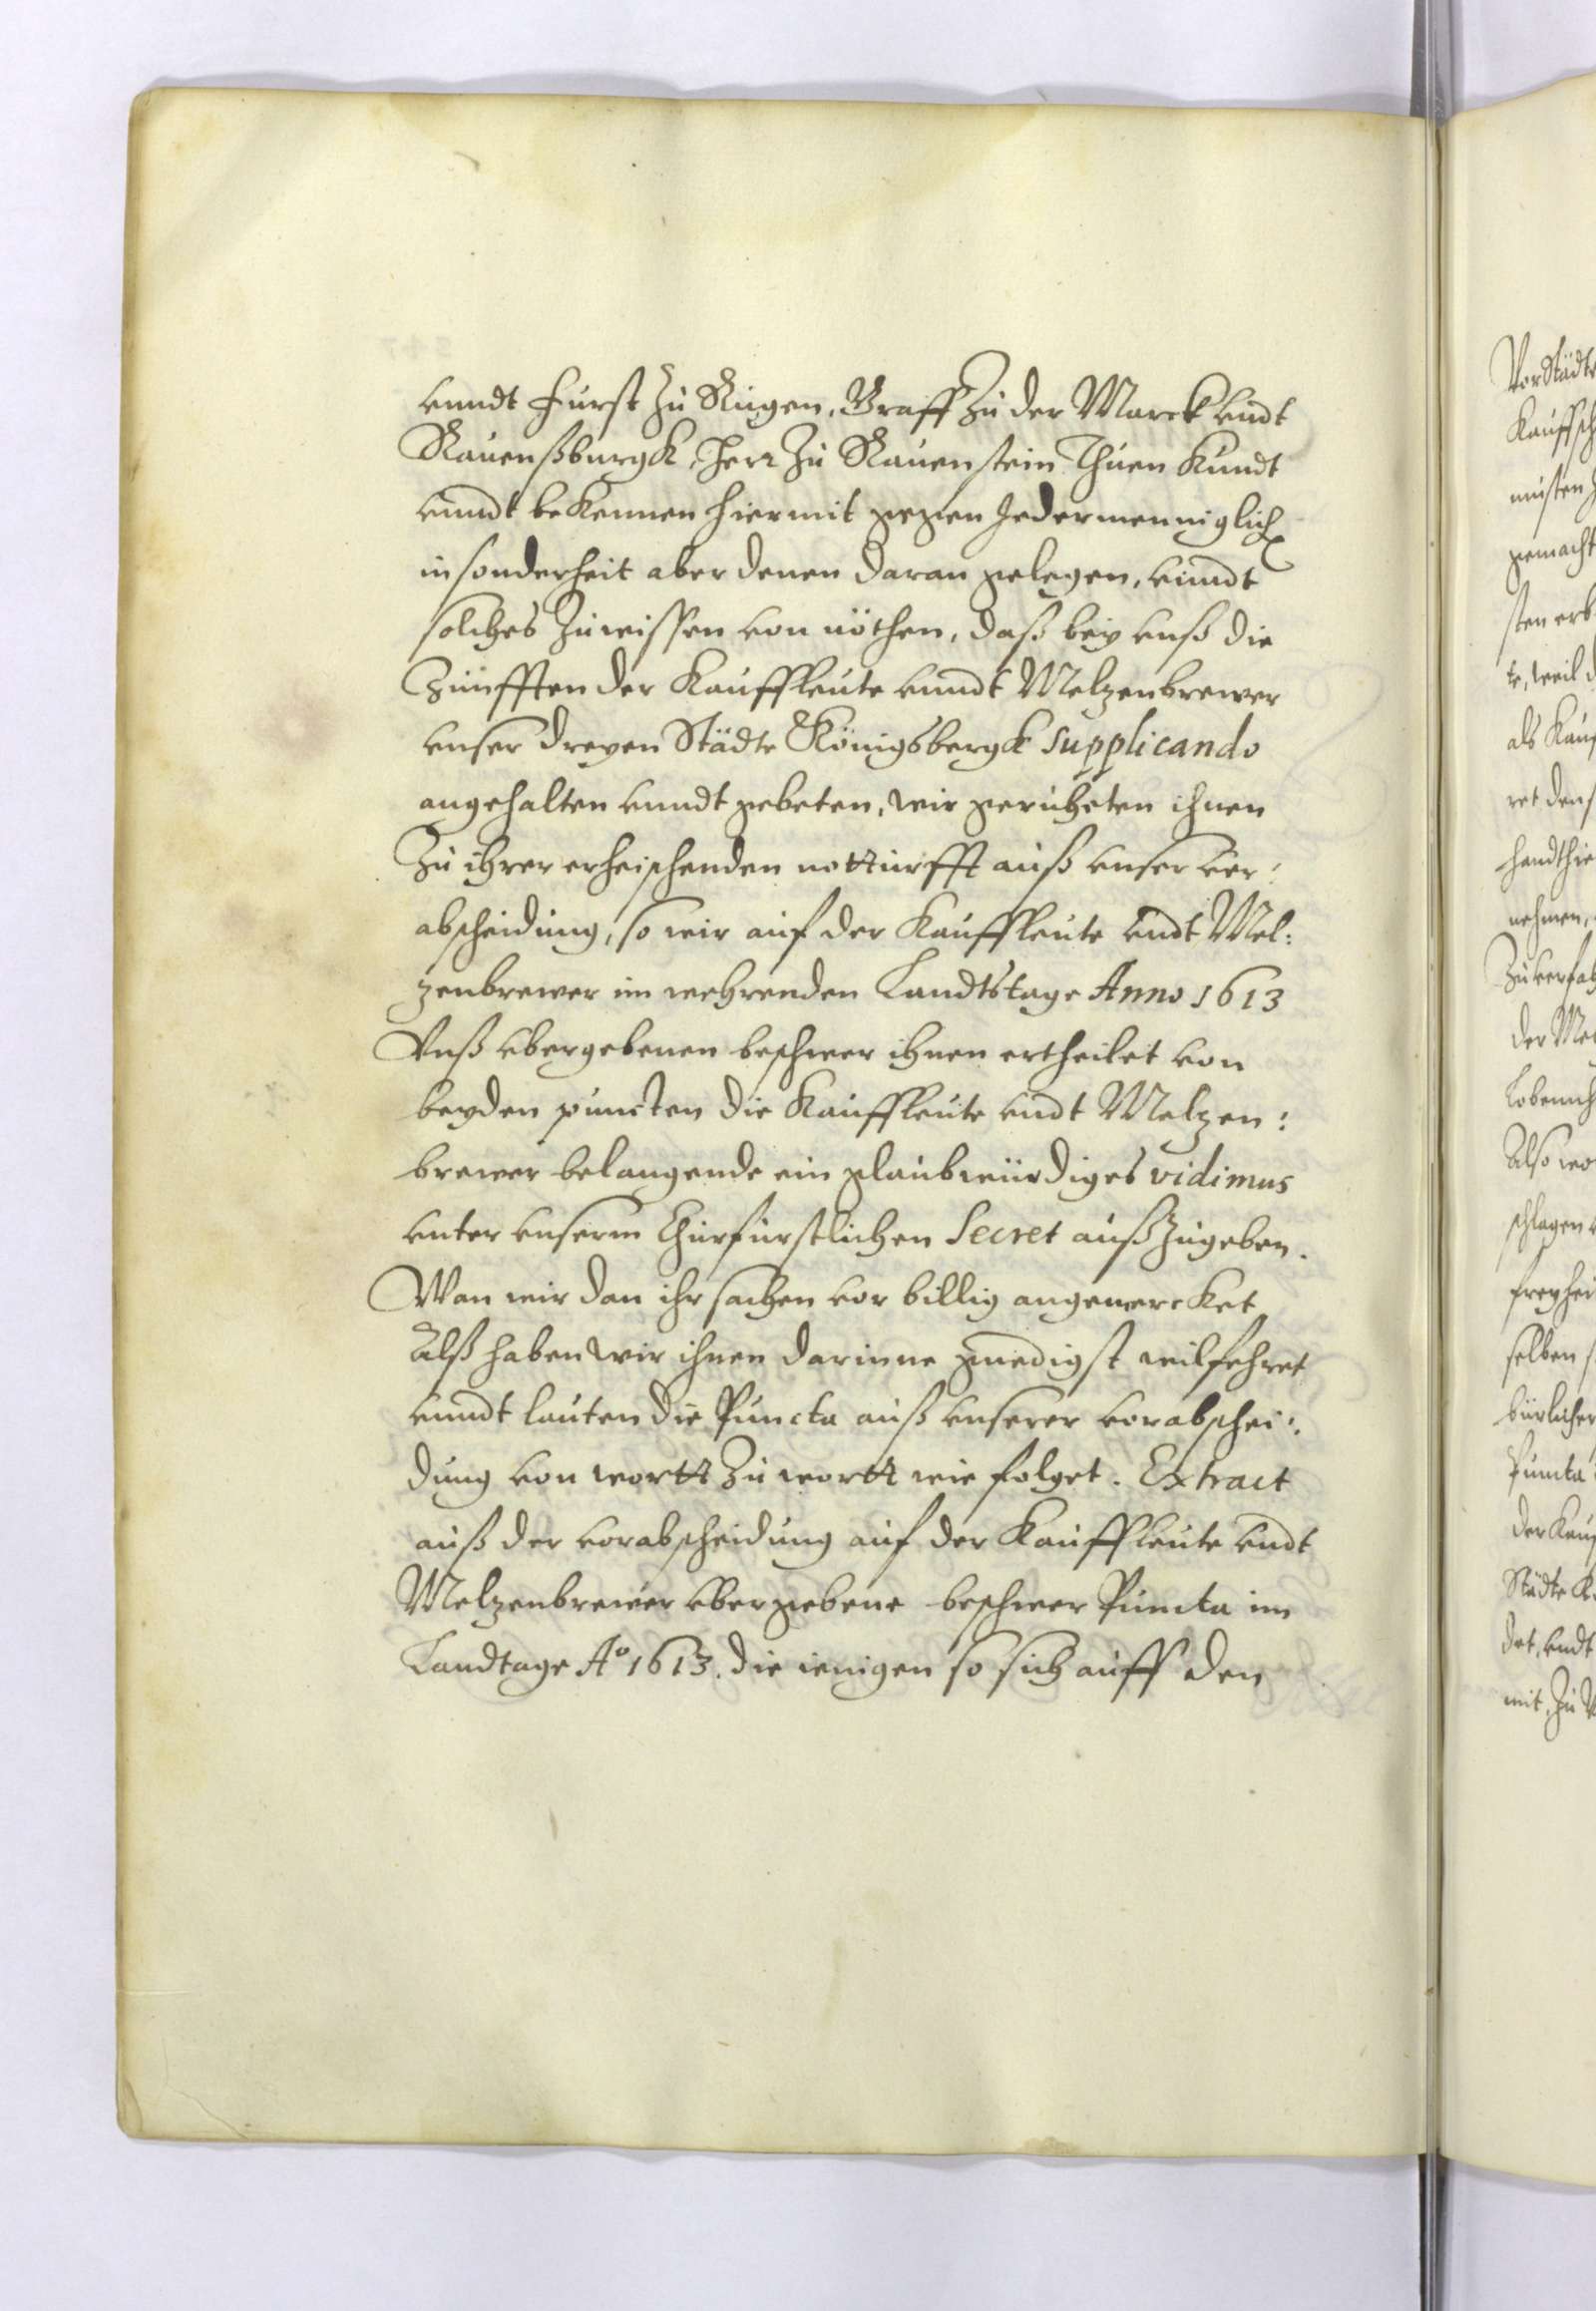 vnndt Furst zu Rügen, Graff zu der Marck vndt
Rauenßburgk, Herr zu Rauenstein Thuen Kundt
vnndt bekennen hiermit gegen Jedermenniglich
insonderheit aber denen daran gelegen, vnndt
solches zuwissen von nöthen, daß bey vnß die
Zünfften der Kauffleute vnndt Meltzenbrewer
vnser dreyen Städte Königsbergk supplicando
angehalten vnndt gebeten, wir geruheten ihnen
Zu ihrer erheischenden notturfft auß vnser ver:
abscheidung, so wir auf der Kauffleute vndt Mel:
zenbrewer im wehrenden Landtstage Anno 1613
Vnß vbergebenen beschwer ihnen ertheilet von
beyden puncten die Kauffleute vndt Meltzen:
brewer belangende ein glaubwürdiges vidimus
vnter vnserm Churfürstlichen Secret außzugeben.
Wan wir dan ihr suchen vor billig angemercket
Alß haben wir ihnen darinne gnedigst wilfehret
vnndt lauten die Puncta auß vnserer vorabschei:
dung von wortt zu wortt wie folget. Extract
auß der vorabscheidung auf der Kauffleute vndt
Meltzenbrewer vbergebene beschwer Puncta im
Landtage Aº 1613. die ienigen so sich auff den
Vor Städte
Kauffsch
müsten
gemacht
sten erb
te, weil d
als Kauf
ret den
handthie
nehmen,
Der Mel
Lobenich
Also
schlagen
freyhei
selben
bürlicher
Puncta
Der Kauf
Städte K
det, vndt
mit, zu